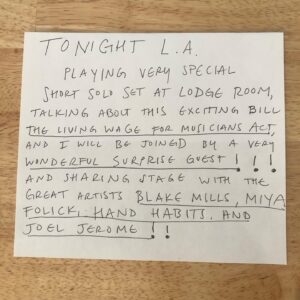 TONIGHT L.A.
PLAYING VERY SPECIAL
SHORT SOLO SET AT LODGE ROOM,
TALKING ABOUT THIS EXCITING BILL
THE LIVING WAGE FOR MUSICIANS ACT,
AND I WILL BE JOINED BY A VERY
WONDERFUL SURPRISE GUEST!!!
AND SHARING STAGE WITH THE
GREAT ARTISTS BLAKE MILLS, MIYA
FOLICK, HAND HABITS, AND
JOEL JEROME!!